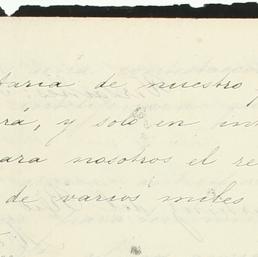 taria de nuestro
rá, y solo en in
para nosotros el re
de varios miles